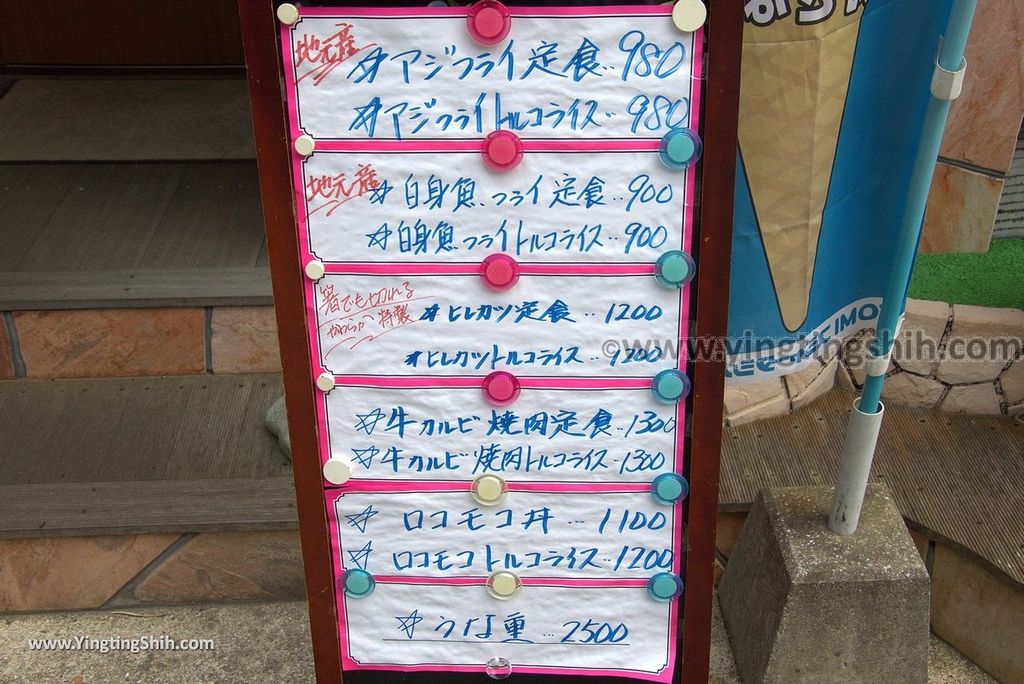 地元産
☆アジフライ定食‥980
☆アジフライトルコライス‥980
地元産
☆白身魚フライ定食‥900
☆白身魚フライトルコライス‥900
箸でも切れる
やわらか特製
☆ヒレカツ定食‥1200
☆ヒレカツトルコライス‥1200
☆牛カルビ焼肉定食‥1300
☆牛カルビ焼肉トルコライス‥1300
☆ロコモコ丼…1100
☆ロコモコトルコライス‥1200
☆うな重…2500
©www.yingtingshih.com
www.YingtingShih.com